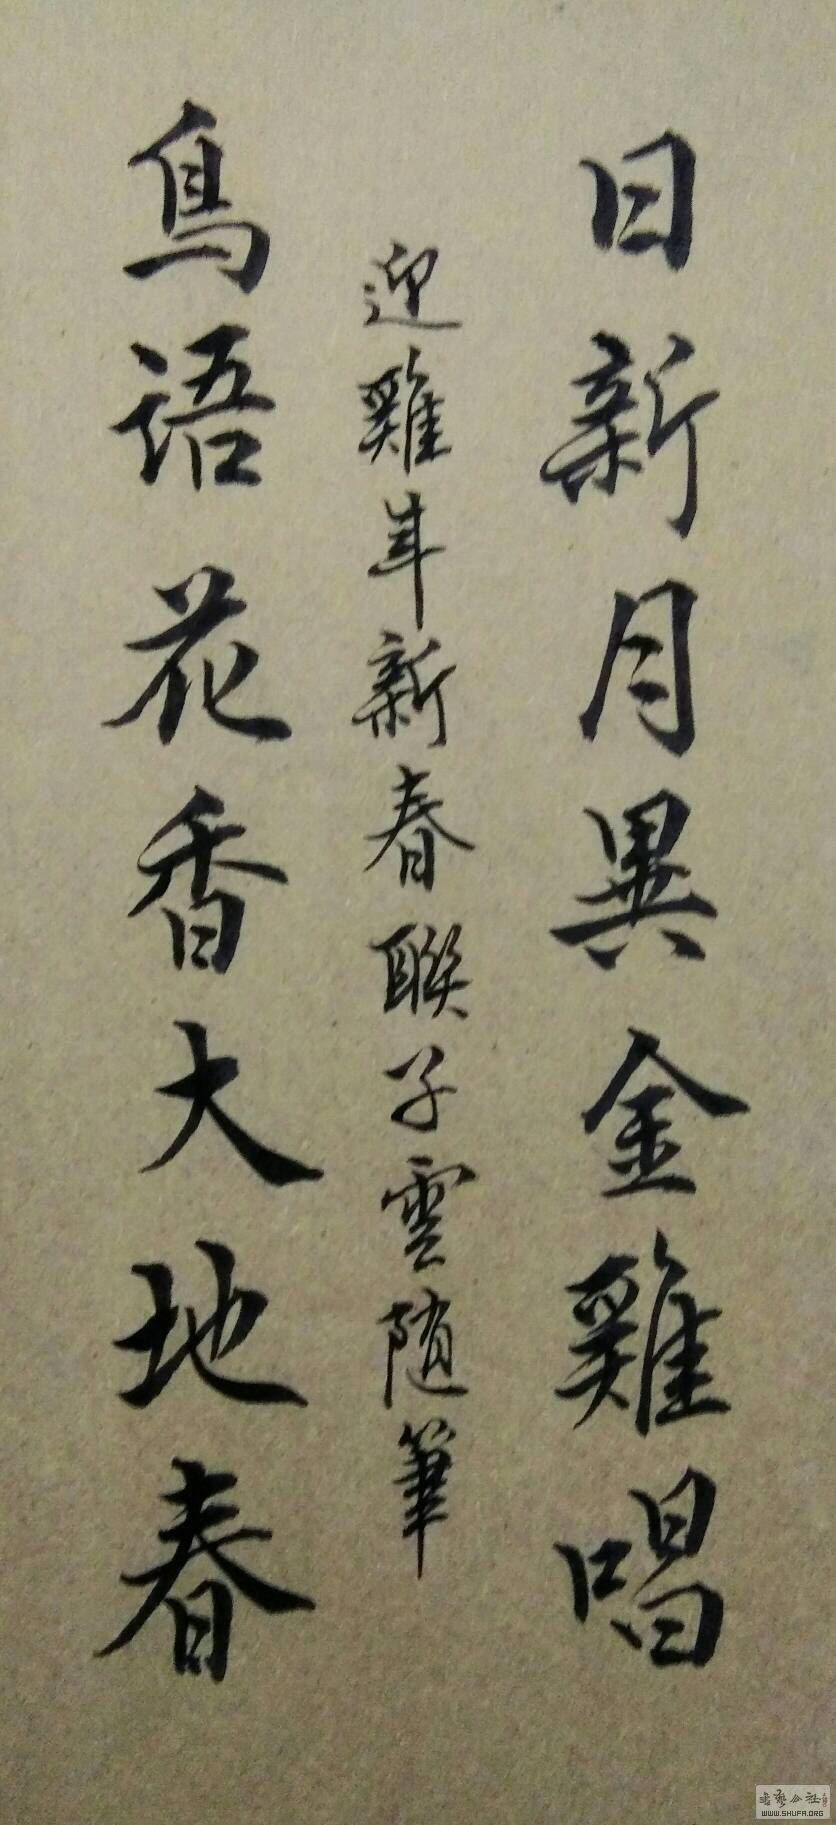 日新月異金雞唱
鳥语花香大地春
迎雞年新春聯子雲随筆
书艺公社
WWW.SHUFA.ORG